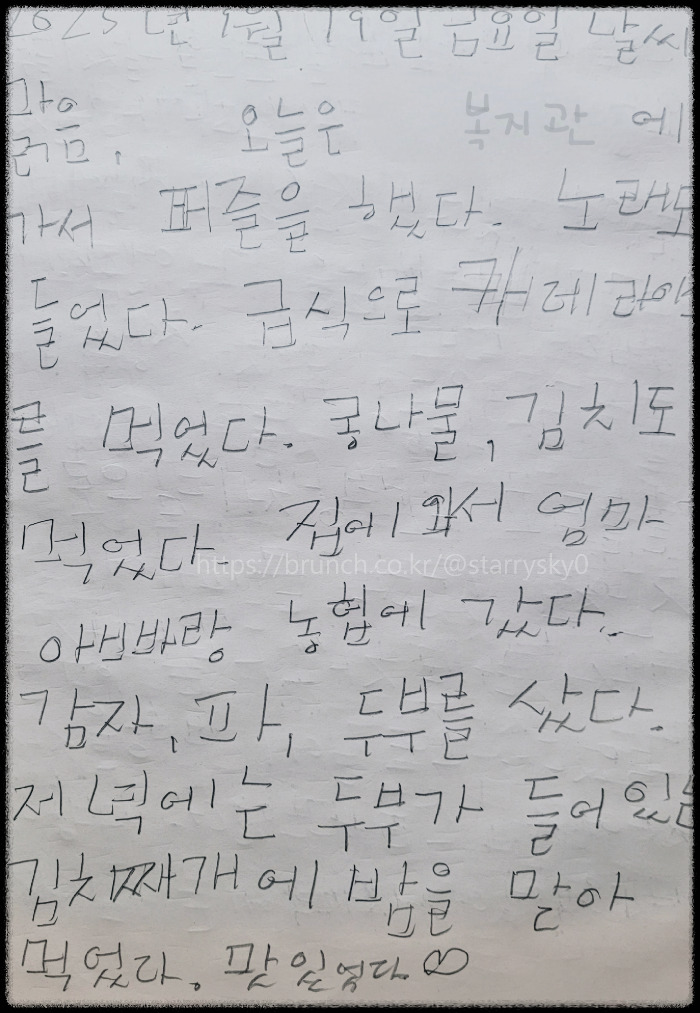 2025년 9월 19일 금요일 날씨
맑음. 오늘은 복지관에
가서 퍼즐을 했다. 노래도
들었다. 급식으로 카레라이스
를 먹었다. 콩나물, 김치도
먹었다. 집에 와서 엄마
아빠랑 농협에 갔다.
감자, 파, 두부를 샀다.
저녁에는 두부가 들어있는
김치찌개에 밥을 말아
먹었다. 맛있었다
https://brunch.co.kr/@starrysky0